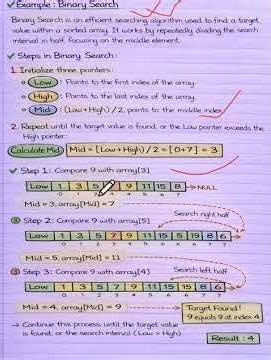 ✓ Example : Binary Search
Binary Search is an efficient searching algorithm used to find a target
value within a sorted array. It works by repeatedly dividing the search
interval in half, focusing on the middle element.
✓ Steps in Binary Search:
1. Initialize three pointers:
Low : Points to the first index of the array.
High : Points to the last index of the array.
Mid : (Low+High) / 2, points to the middle index
2. Repeat until the target value is found, or the Low pointer exceeds the
High pointer:
Calculate Mid Mid = (Low+High) / 2 = [0+7] = 3
✓ Step 1: Compare 9 with array[3]
Low 1 3 5 9 11 15 8 → NULL
Mid = 3, array[Mid] = 7
Search right half
Step 2: Compare 9 with array[5]
Low 1 3 5 7 9 11 15 5 19 8 6
Mid = 5, array[Mid] = 11
Search left half
Step 3: Compare 9 with array[4]
Low 1 3 5 7 9 11 15 15 8 6
Mid = 4, array[Mid] = 9
Target Found!
9 equals 9 at index 4
→ Continue this process until the target value
is found, or the search interval (Low > High).
Result : 4